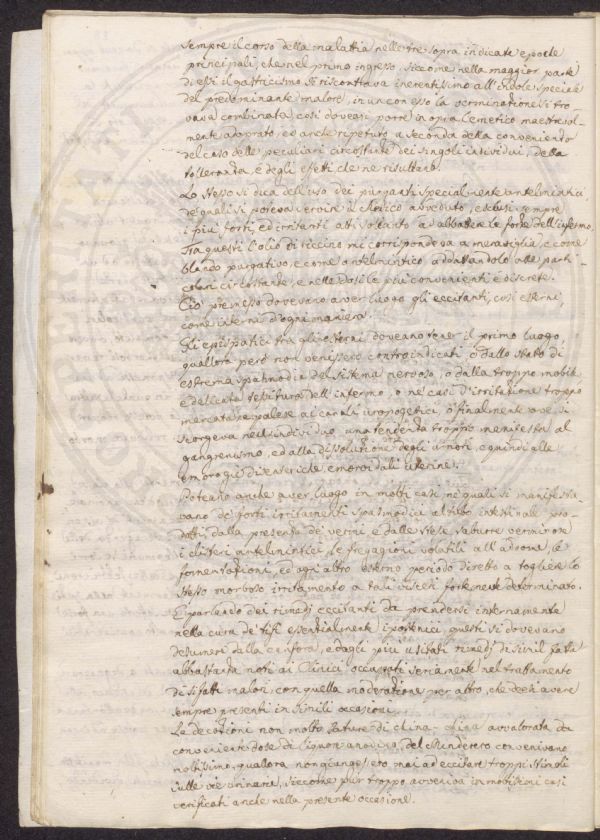 sempre il corso della malattia nelle tre sopra indicate epoche
principali, che nel primo ingresso, siccome nella maggior parte
di essi il gastricismo si riscontrava inerentissimo all'indole speciale
del predominante malore, in un con esso la verminazione si tro-
vava combinata, così doveasi porre in opra l'emetico maestrevol-
mente adoprato, ed anche ripetuto a seconda della convenienza
del caso delle peculiari circostanze dei singoli individui, della
tolleranza, e degli effetti che ne risultano.
Lo stesso si dica dell'uso dei purganti specialmente antelmintici,
de' quali si poteva servire il Clinico avveduto, esclusi sempre
i più forti, ed irritanti atti soltanto ad abbattere le forze dell'infermo,
Tra questi l'olio di riccino mi corrispondeva a meraviglia, e come
blando purgativo, e come antelmintico adattandolo alle parti-
colari circostanze, e nelle dosi le più convenienti e discrete.
Ciò premesso dovevano aver luogo gli eccitanti, così esterni,
come interni d'ogni maniera.
Gli epispatici tra gli esterni doveano tener il primo luogo,
quallora però non venissero controindicati, o dallo stato di
estrema spasmodia del sistema nervoso, o dalla troppo mobile
e delicata tessitura dell'infermo, o ne' casi d'irritazione troppo
marcata, e palese ai canali uropogetici, o finalmente ove si
scorgeva nell'individuo una tendenza troppo manifesta al
gangrenismo, ed alla dissoluzione degli umori, e quindi alle
emoragie dienteriche, emoroidali uterine.
Poteano anche aver luogo in molti casi ne' quali si manifesta-
vano de' forti irritamenti spasmodici al tubo intestinale pro-
dotti dalla presenza de' vermi e dalle stesse saburre verminose
i clisteri antelmintici, le fregagioni volatili all'addome, le
fomentazioni, ed ogni altro esterno periodo diretto a togliere lo
stesso morboso irritamento a tali visceri fortemente determinato.
E parlando dei rimedj eccitanti da prendersi internamente
nella cura de' tifi essenzialmente ipostenici, questi si dovevano
desumere dalla canfora, e dagli più usitati rimedj di simil fatta
abbastanza noti ai Clinici occupati seriamente nel trattamento
di sifatti malori, con quella moderazione per altro, che deesi avere
sempre presenti in simili occasioni.
Le decozioni non molto sature di china china avvalorata da
conveniente dose di liquor anodino, del Minderero convenivano
moltissimo, qualora non giungessero mai ad eccitare troppi stimoli
sulle vie urinarie, siccome pur troppo avveniva in moltissimi casi
verificati anche nella presente occasione.